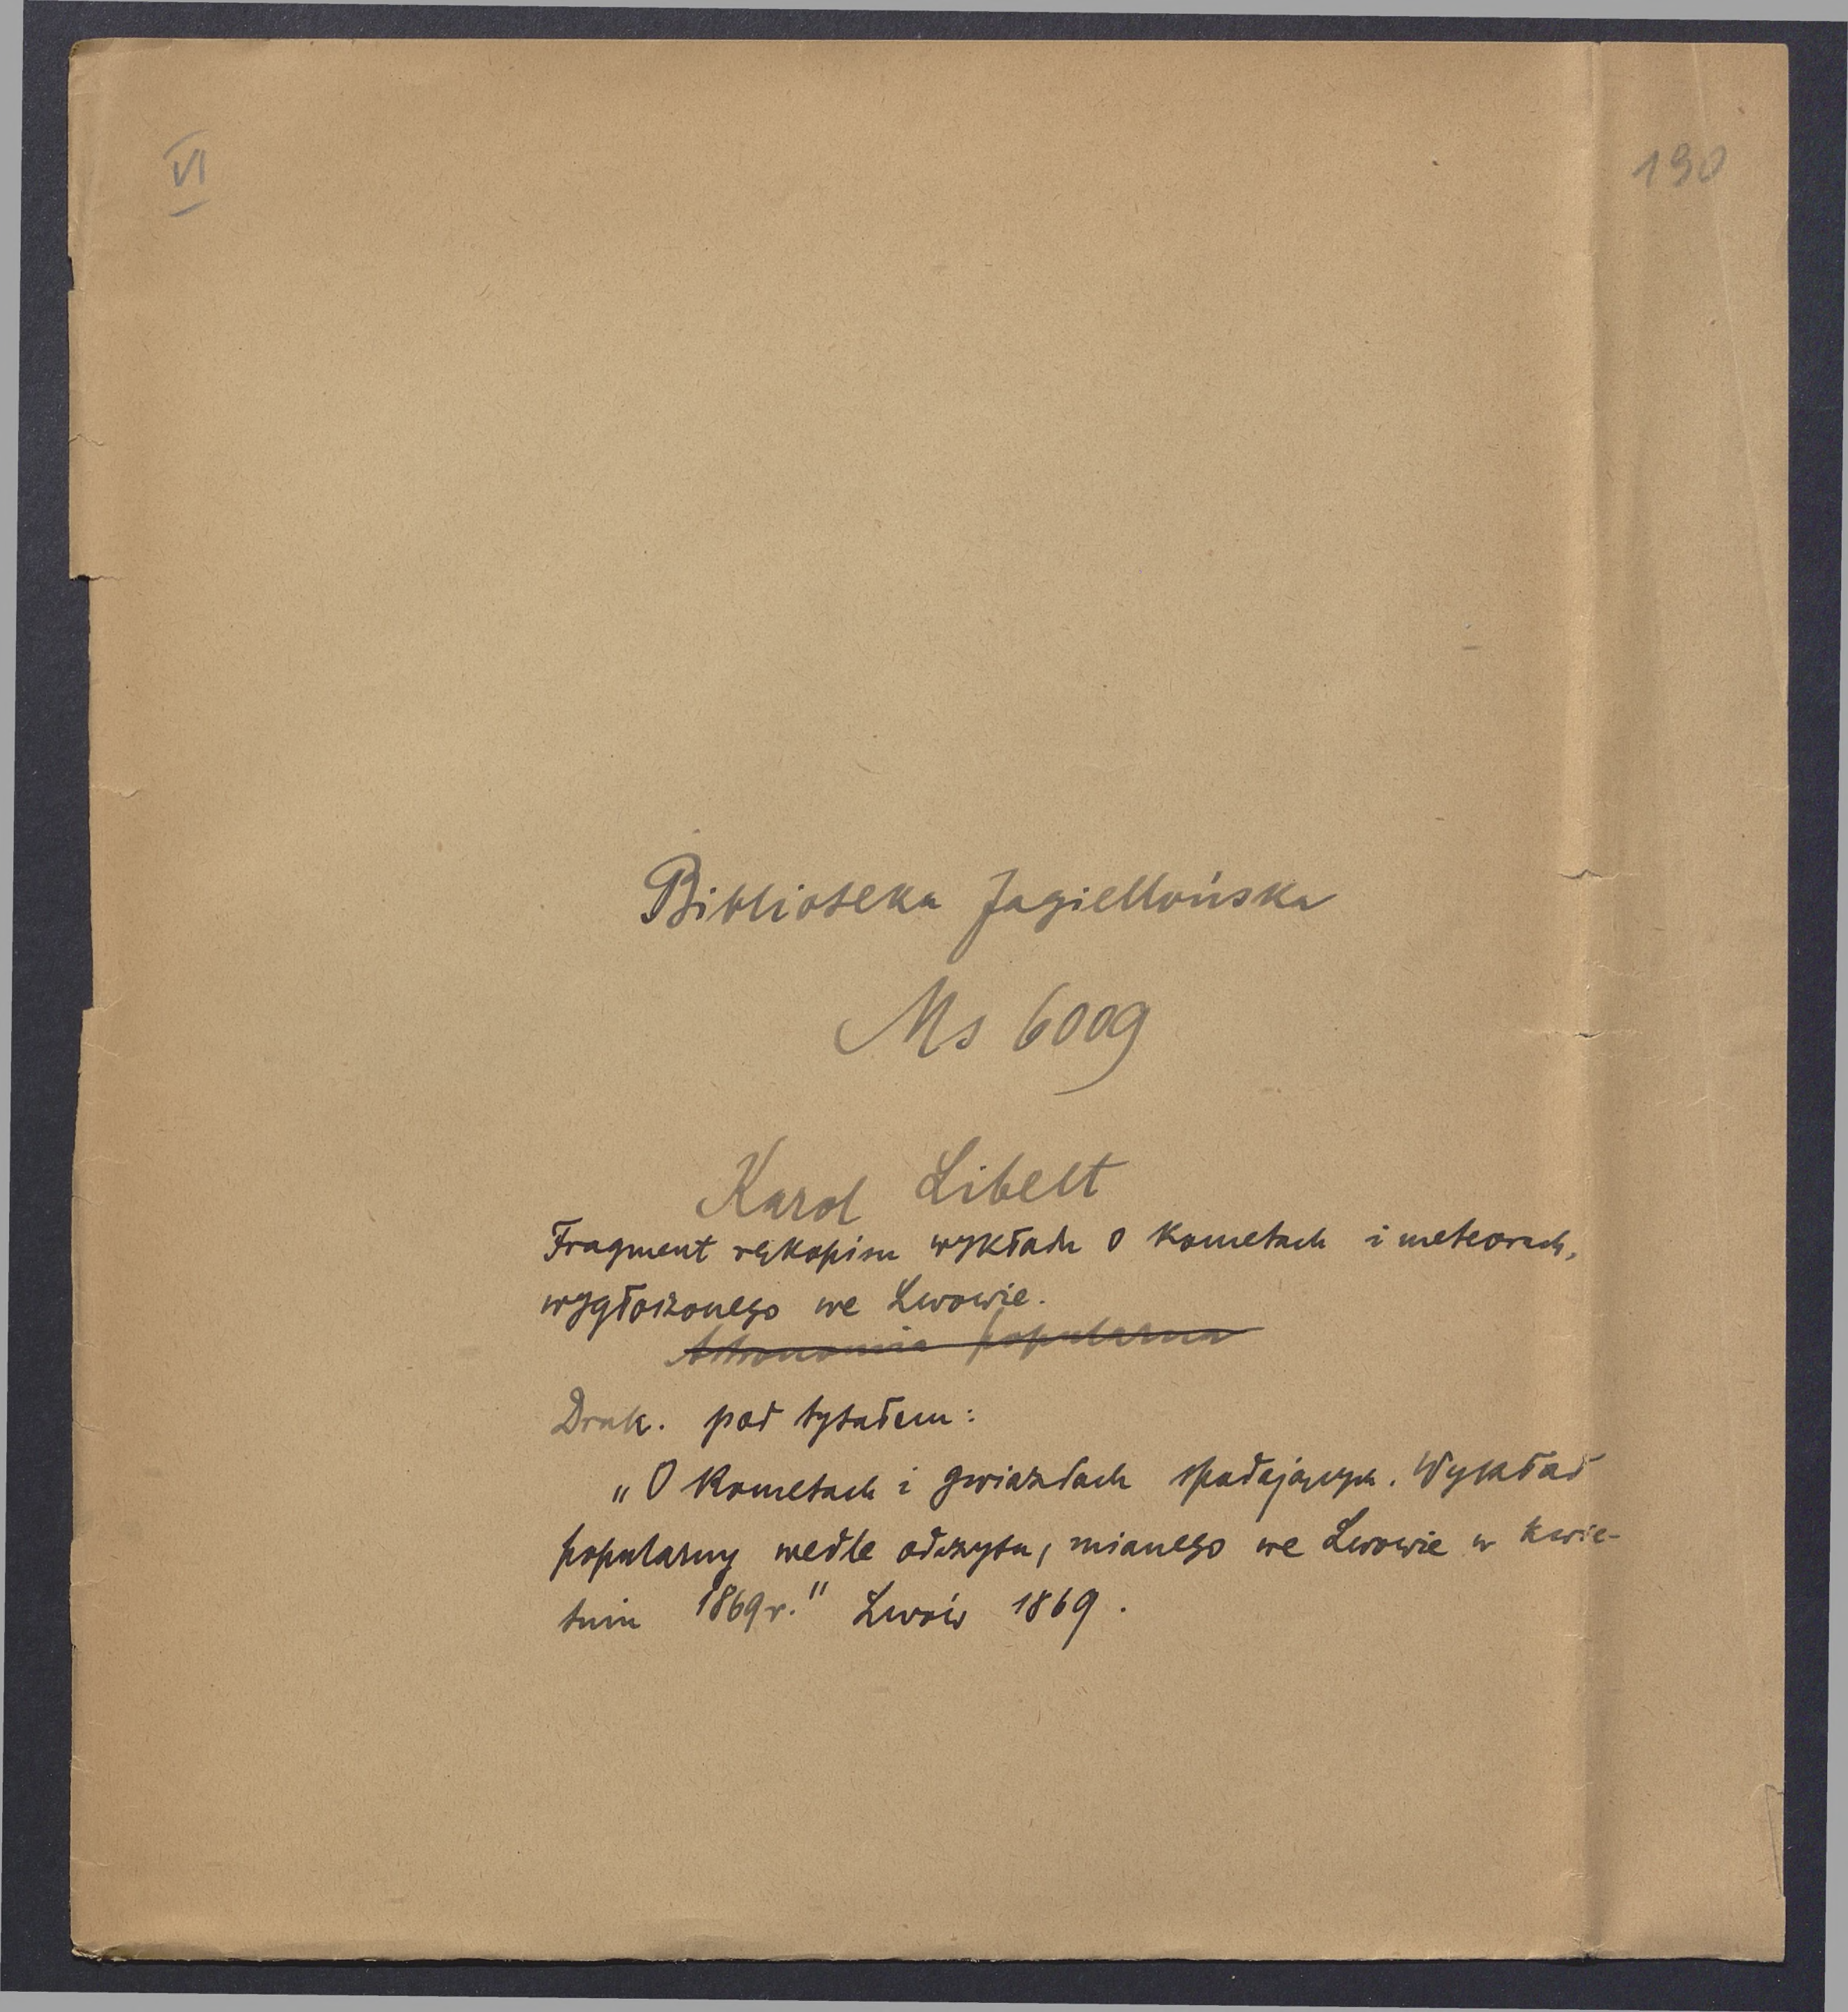 VI
190
Biblioteka Jagiellońska
Ms 6009
Karol Libelt
Fragment rękopisu wykładu o kometach i meteorach,
wygłoszonego we Lwowie.
Astronomia popularna
Druk. pod tytułem:
„O Kometach i gwiazdach spadających. Wykład
popularny wedle odczytu, mianego we Lwowie w kwie-
tniu 1869 r." Lwów 1869.